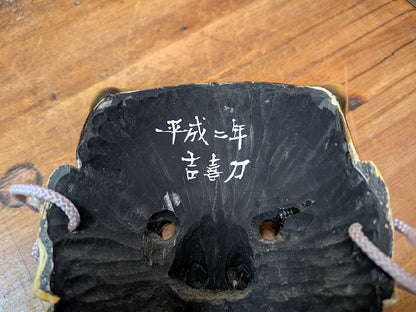 平成二年
吉喜刀